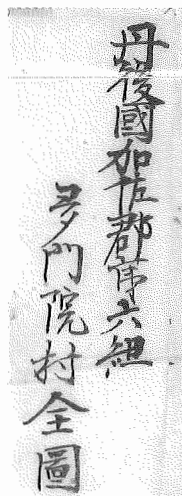 丹後國加佐郡第六組
多門院村全圖